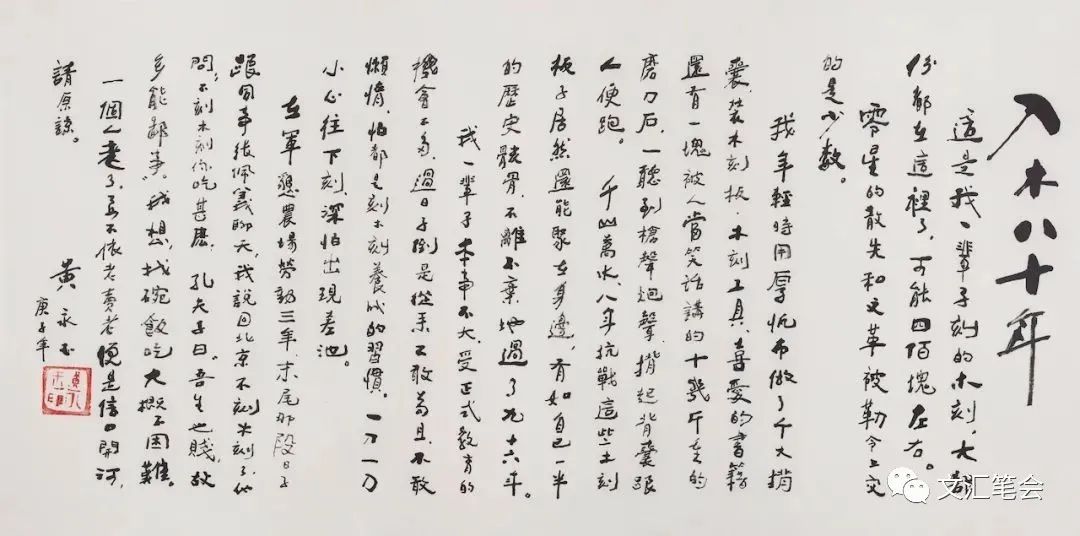 入木八十年
這是我一輩子刻的木刻,大部
份都在這裡了,可能四佰塊左右。
零星的散失和文革被勒令上交
的是少数。
我年輕時用厚帆布做了个大揹
囊裝木刻板、木刻工具、喜愛的書籍
還有一塊被人當笑话講的十幾斤重的
磨刀石,一聽到槍聲炮聲,揹起背囊跟
人便跑。千山萬水,八年抗戰這些土刻
板子居然還能聚在身邊,有如自己一半
的歷史骸骨,不離不棄地過了九十六年。
我一輩子本事不大,受正式教育的
機會不多,過日子倒是從来不敢苟且、不敢
懶惰,怕都是刻木刻養成的習慣。一刀一刀
小心往下刻,深怕出現差池。
在軍墾農場勞動三年,末尾那段日子
跟同事張佩義聊天,我說回北京不刻木刻了,他
問:不刻木刻你吃甚麽,孔夫子曰:吾生也賤,故
多能鄙事,我想,找碗飯吃大概不困難。
一個人老了,若不依老賣老便是信口開河,
請原諒。
黄永玉
庚子年
文汇笔会